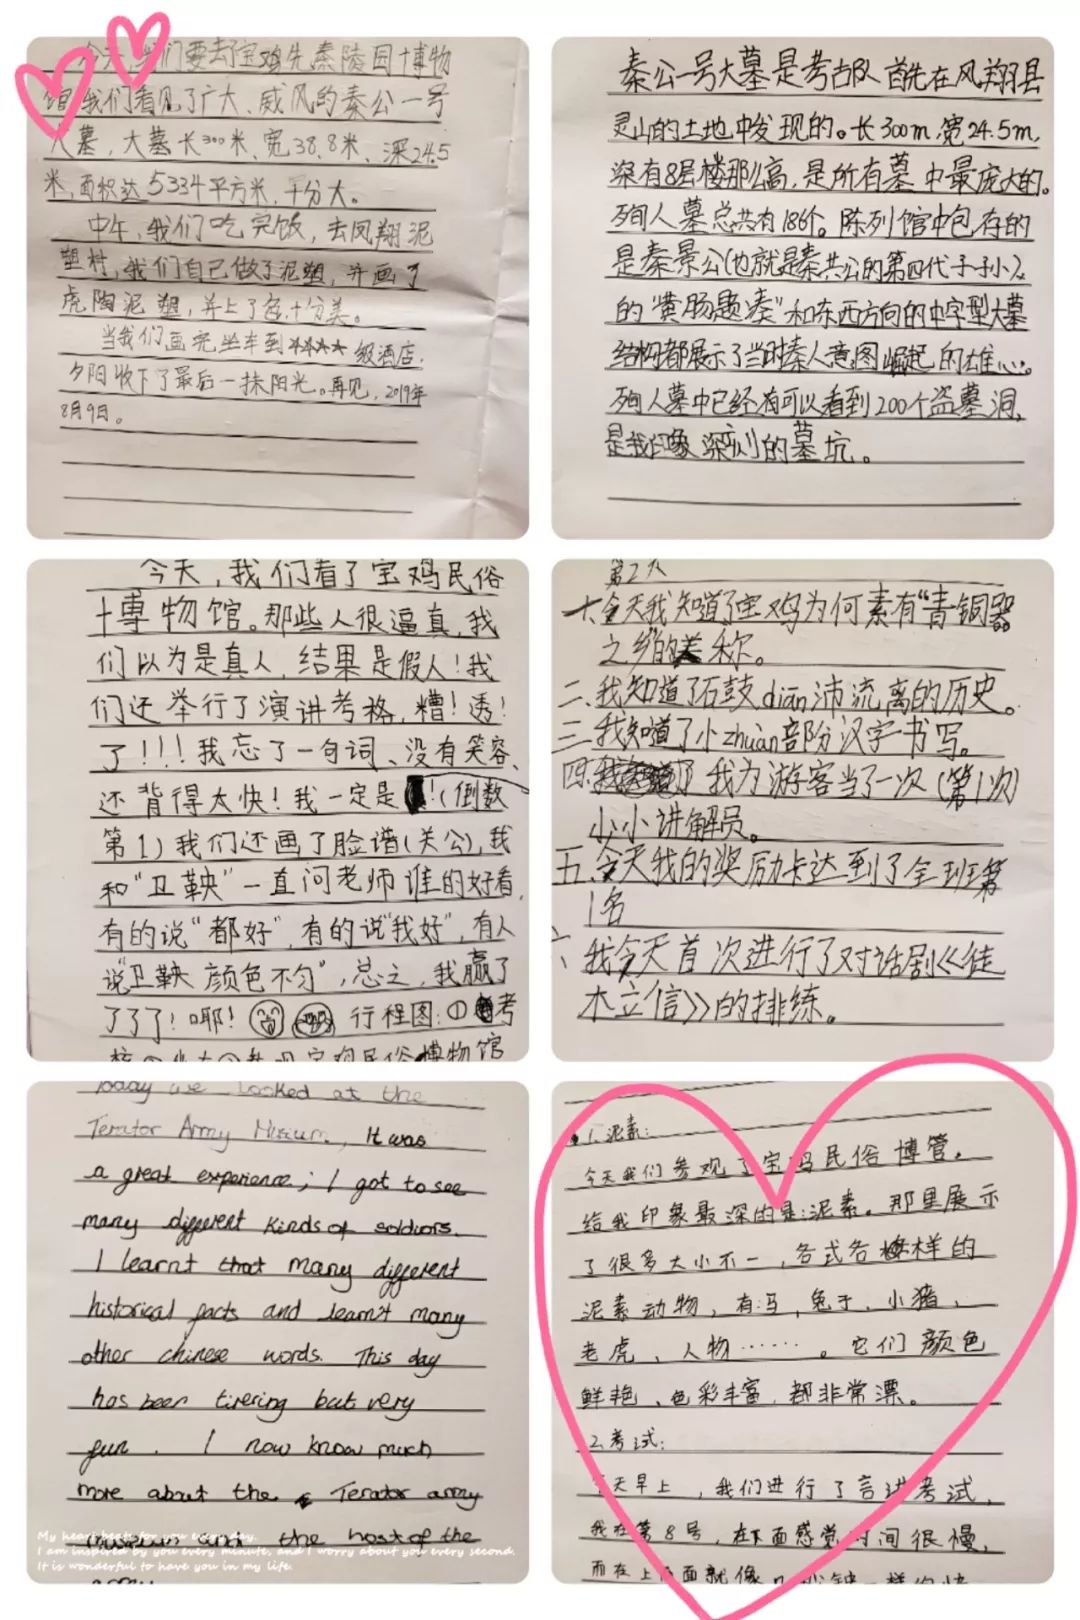 今天,我们要去了宝鸡先秦陵园博物
馆,我们看见了广大、威风的秦公一号
大墓,大墓长300米、宽38.8米、深24.5
米,面积达5334平方米,千分大。
中午,我们吃完饭,去凤翔泥
塑村,我们自己做了泥塑,并画了
虎陶泥塑,并上了色,十分美。
当我们画完坐车到★★★★级酒店,
夕阳收下了最后一抹阳光。再见,2019年
8月9日。
秦公一号大墓是考古队首先在凤翔县
灵山的土地中发现的。长300m,宽24.5m,
深有8层楼那么高,是所有墓中最庞大的。
殉人墓总共有186个。陈列馆中包存的
是秦景公(也就是秦共公的第四代子孙)
的“黄肠题凑”和东西方向的中字型大墓
结构都展示了当时秦人意图崛起的雄心。
殉人墓中已经有可以看到200个盗墓洞,
是我印象深刻的墓坑。
今天,我们看了宝鸡民俗
博物馆。那些人很逼真,我
们以为是真人,结果是假人!我
们还举行了演讲考格,糟!透!
了!!!我忘了一句词、没有笑容、
还背得太快!我一定是!(倒数
第1)我们还画了脸谱(关公),我
和“卫鞅”一直问老师谁的好看,
有的说“都好”,有的说“我好”,有人
说“卫鞅颜色不匀”,总之,我赢了
了了了!耶! 行程图:①考
核②③参观宝鸡民俗博物馆
第2天
一、今天我知道了宝鸡为何素有“青铜器
之乡”的美称。
二、我知道了石鼓diān沛流离的历史。
三、我知道了小zhuàn部分汉字书写。
四、我为游客当了一次(第1次)
小小讲解员。
五、今天我的奖励卡达到了全班第
1名
六、我今天首次进行了对话剧《徒
木立信》的排练。
Today we looked at the
Terator Army Misium, It was
a great experience; I got to see
many different kinds of soldiors.
I learnt that many different
historical facts and learnt many
other chinese words. This day
has been tirering but very
fun. I now know much
more about the Terator army
musium and the host of the
army
My heart beats for you every day.
I am inspired by you every minute, and I worry about you every second.
It is wonderful to have you in my life.
1.泥素:
今天我们参观了宝鸡民俗博管。
给我印象最深的是:泥素。那里展示
了很多大小不一,各式各样的
泥素动物,有马,兔子、小猪、
老虎、人物……。它们颜色
鲜艳、色彩丰富,都非常漂。
2.考试:
今天早上,我们进行了言讲考试,
我在第8号,在下面感觉时间很慢,
而在上面就像几秒钟一样的快